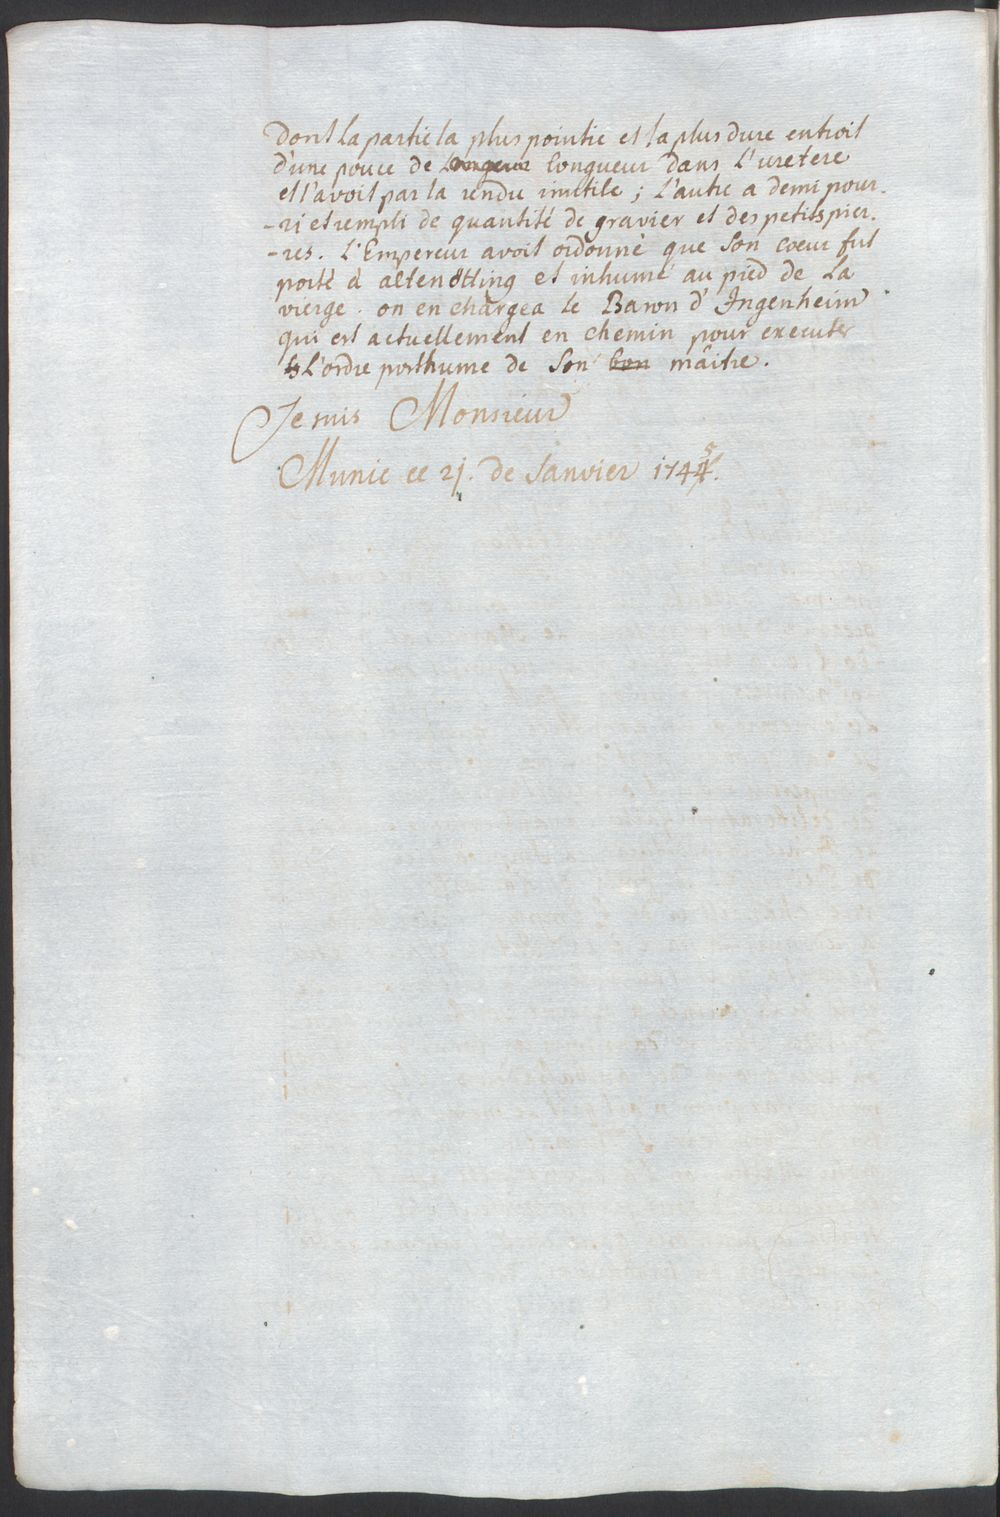 Dont la partie la plus pointie et la plus dure entroit
d'une pouce de longueur dans l'uretere
et l'avoit par la rendu inutile ; l'autre a demi pour-
-ri et rempli de quantité de gravier et des petits pier-
-res. L'Empereur avoit ordonné que son coeur fut
porté à altenötting et inhumé au pied de la
vierge. on en chargea le Baron d'Ingenheim
qui est actuellement en chemin pour executer
L'ordre posthume de son bon maître.
Je suis Monsieur
Munic ce 21. de Janvier 1745.